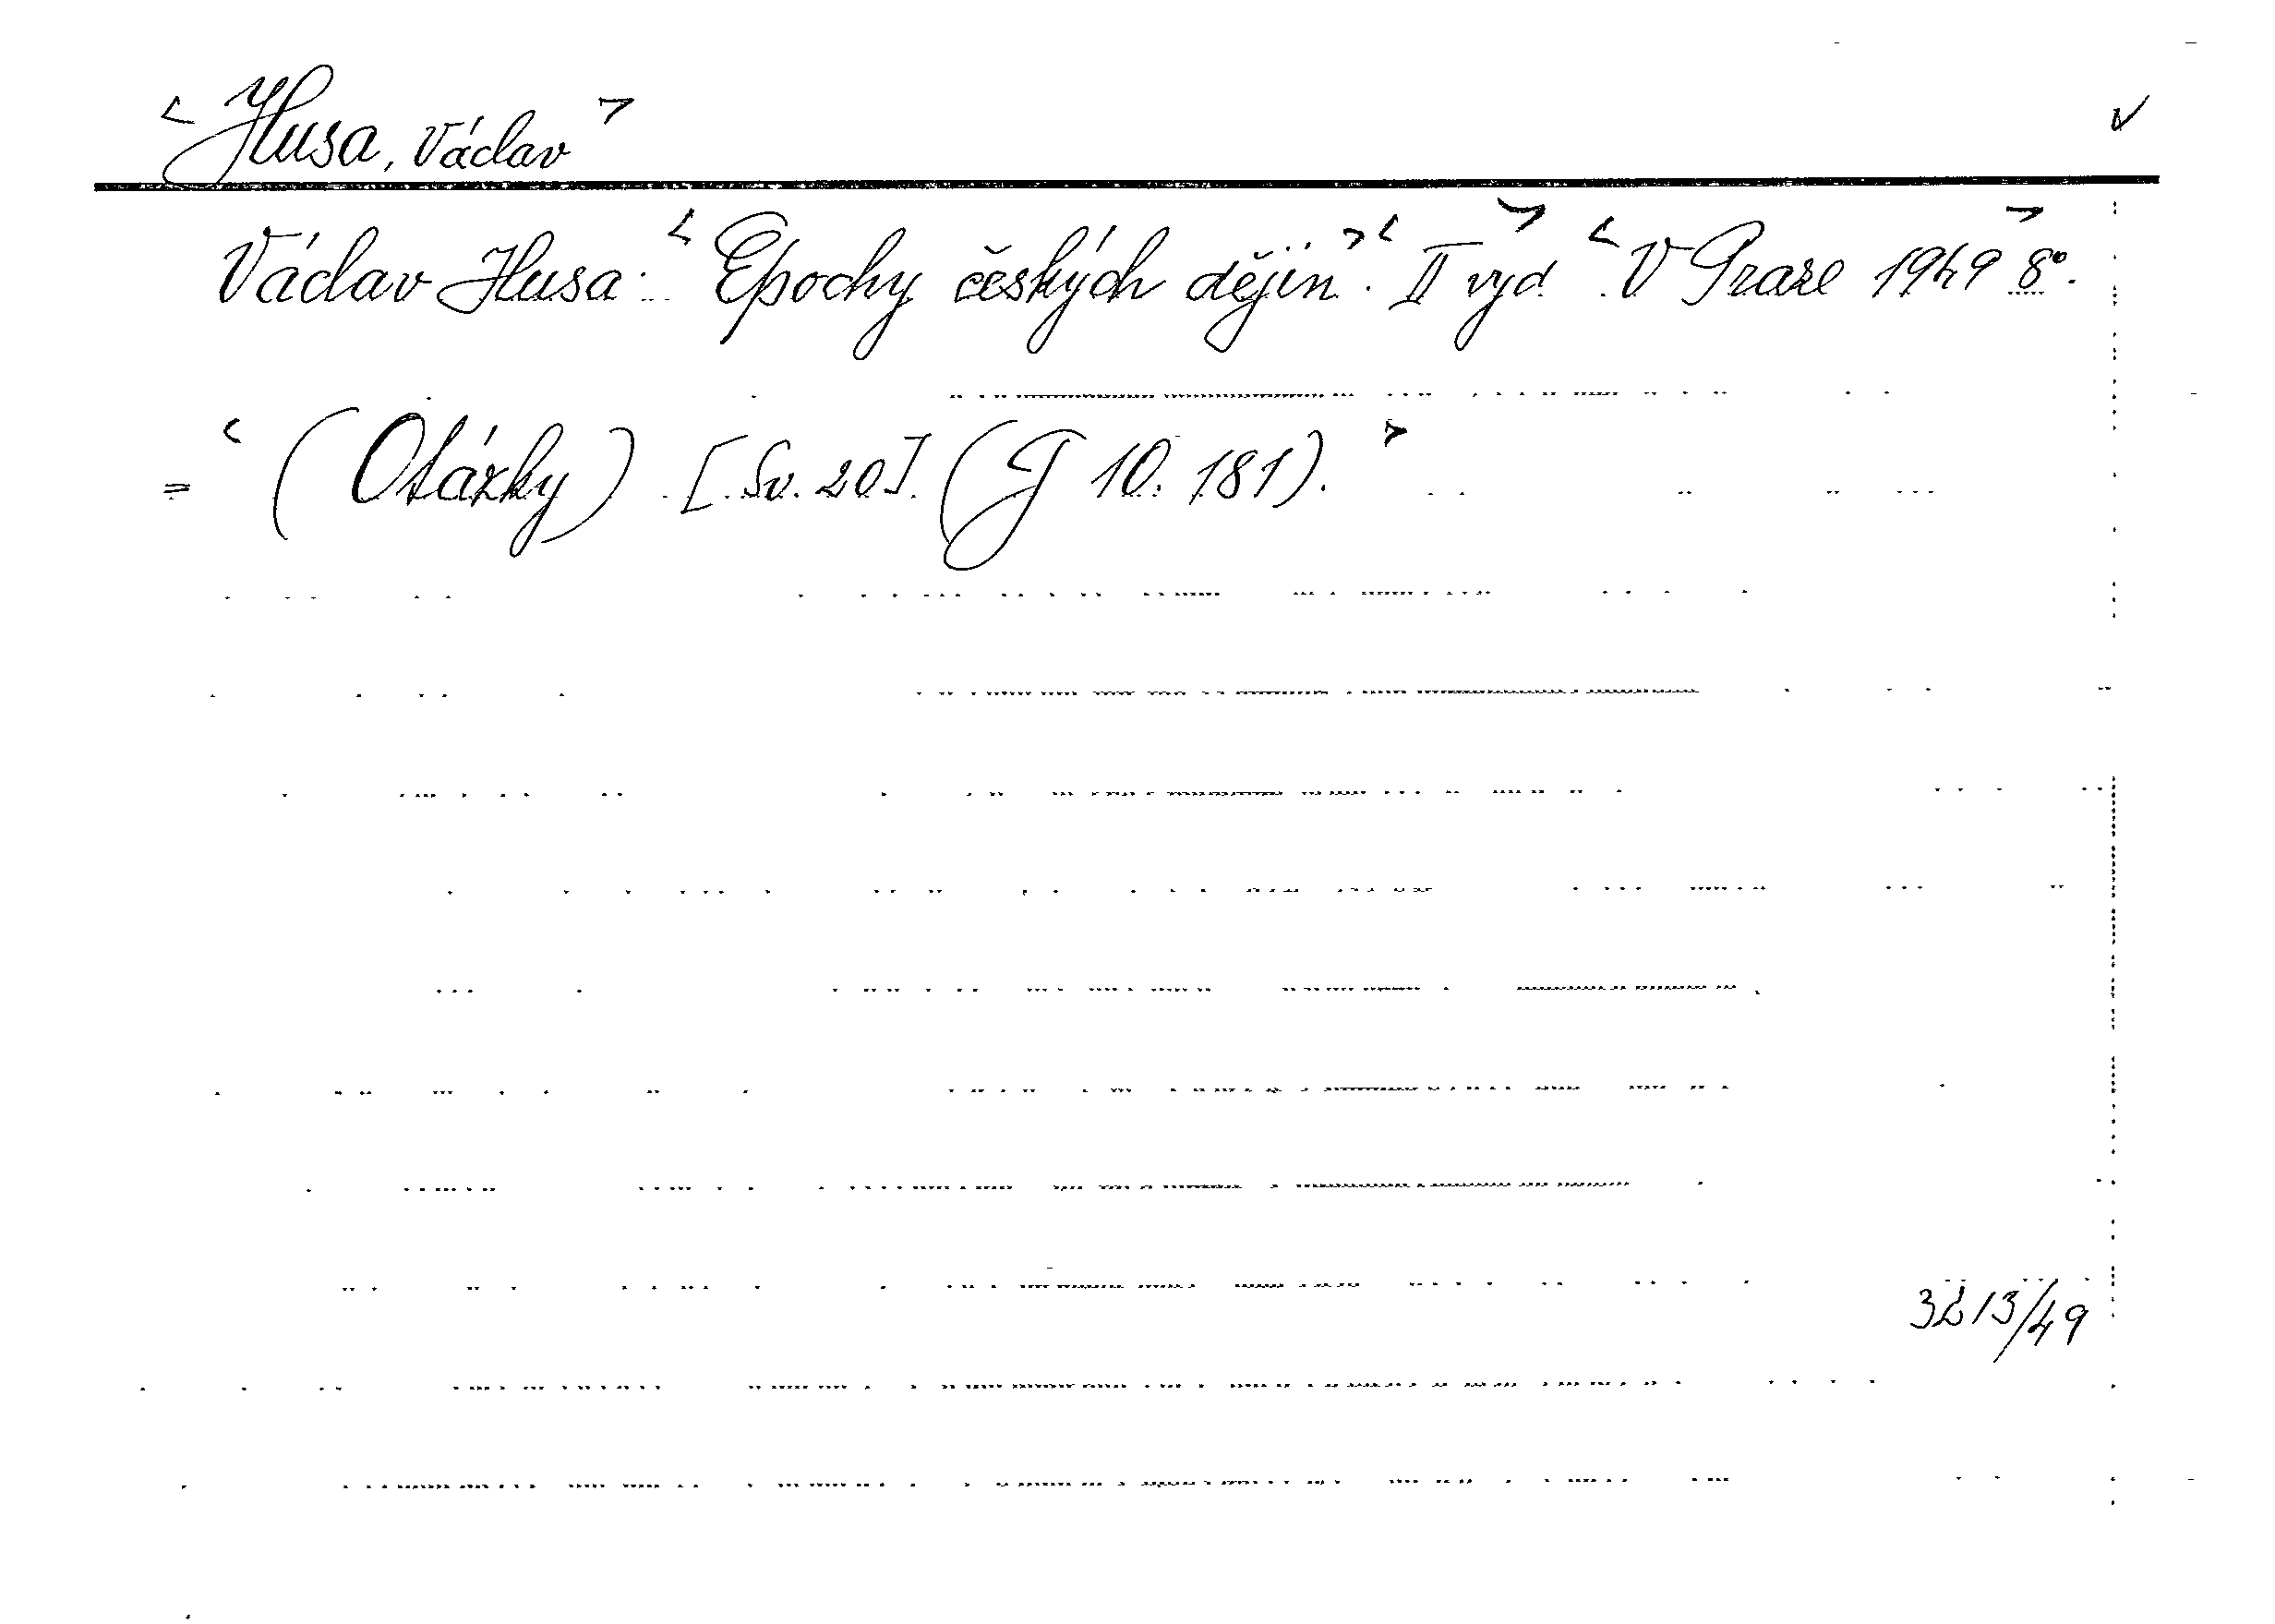 < Husa, Václav >
Václav Husa: < Epochy českých dějin > . < II vyd > < V Praze 1949 8° > .
= < (Otázky) [Sv. 20]. (J 10. 181). >
3213/49